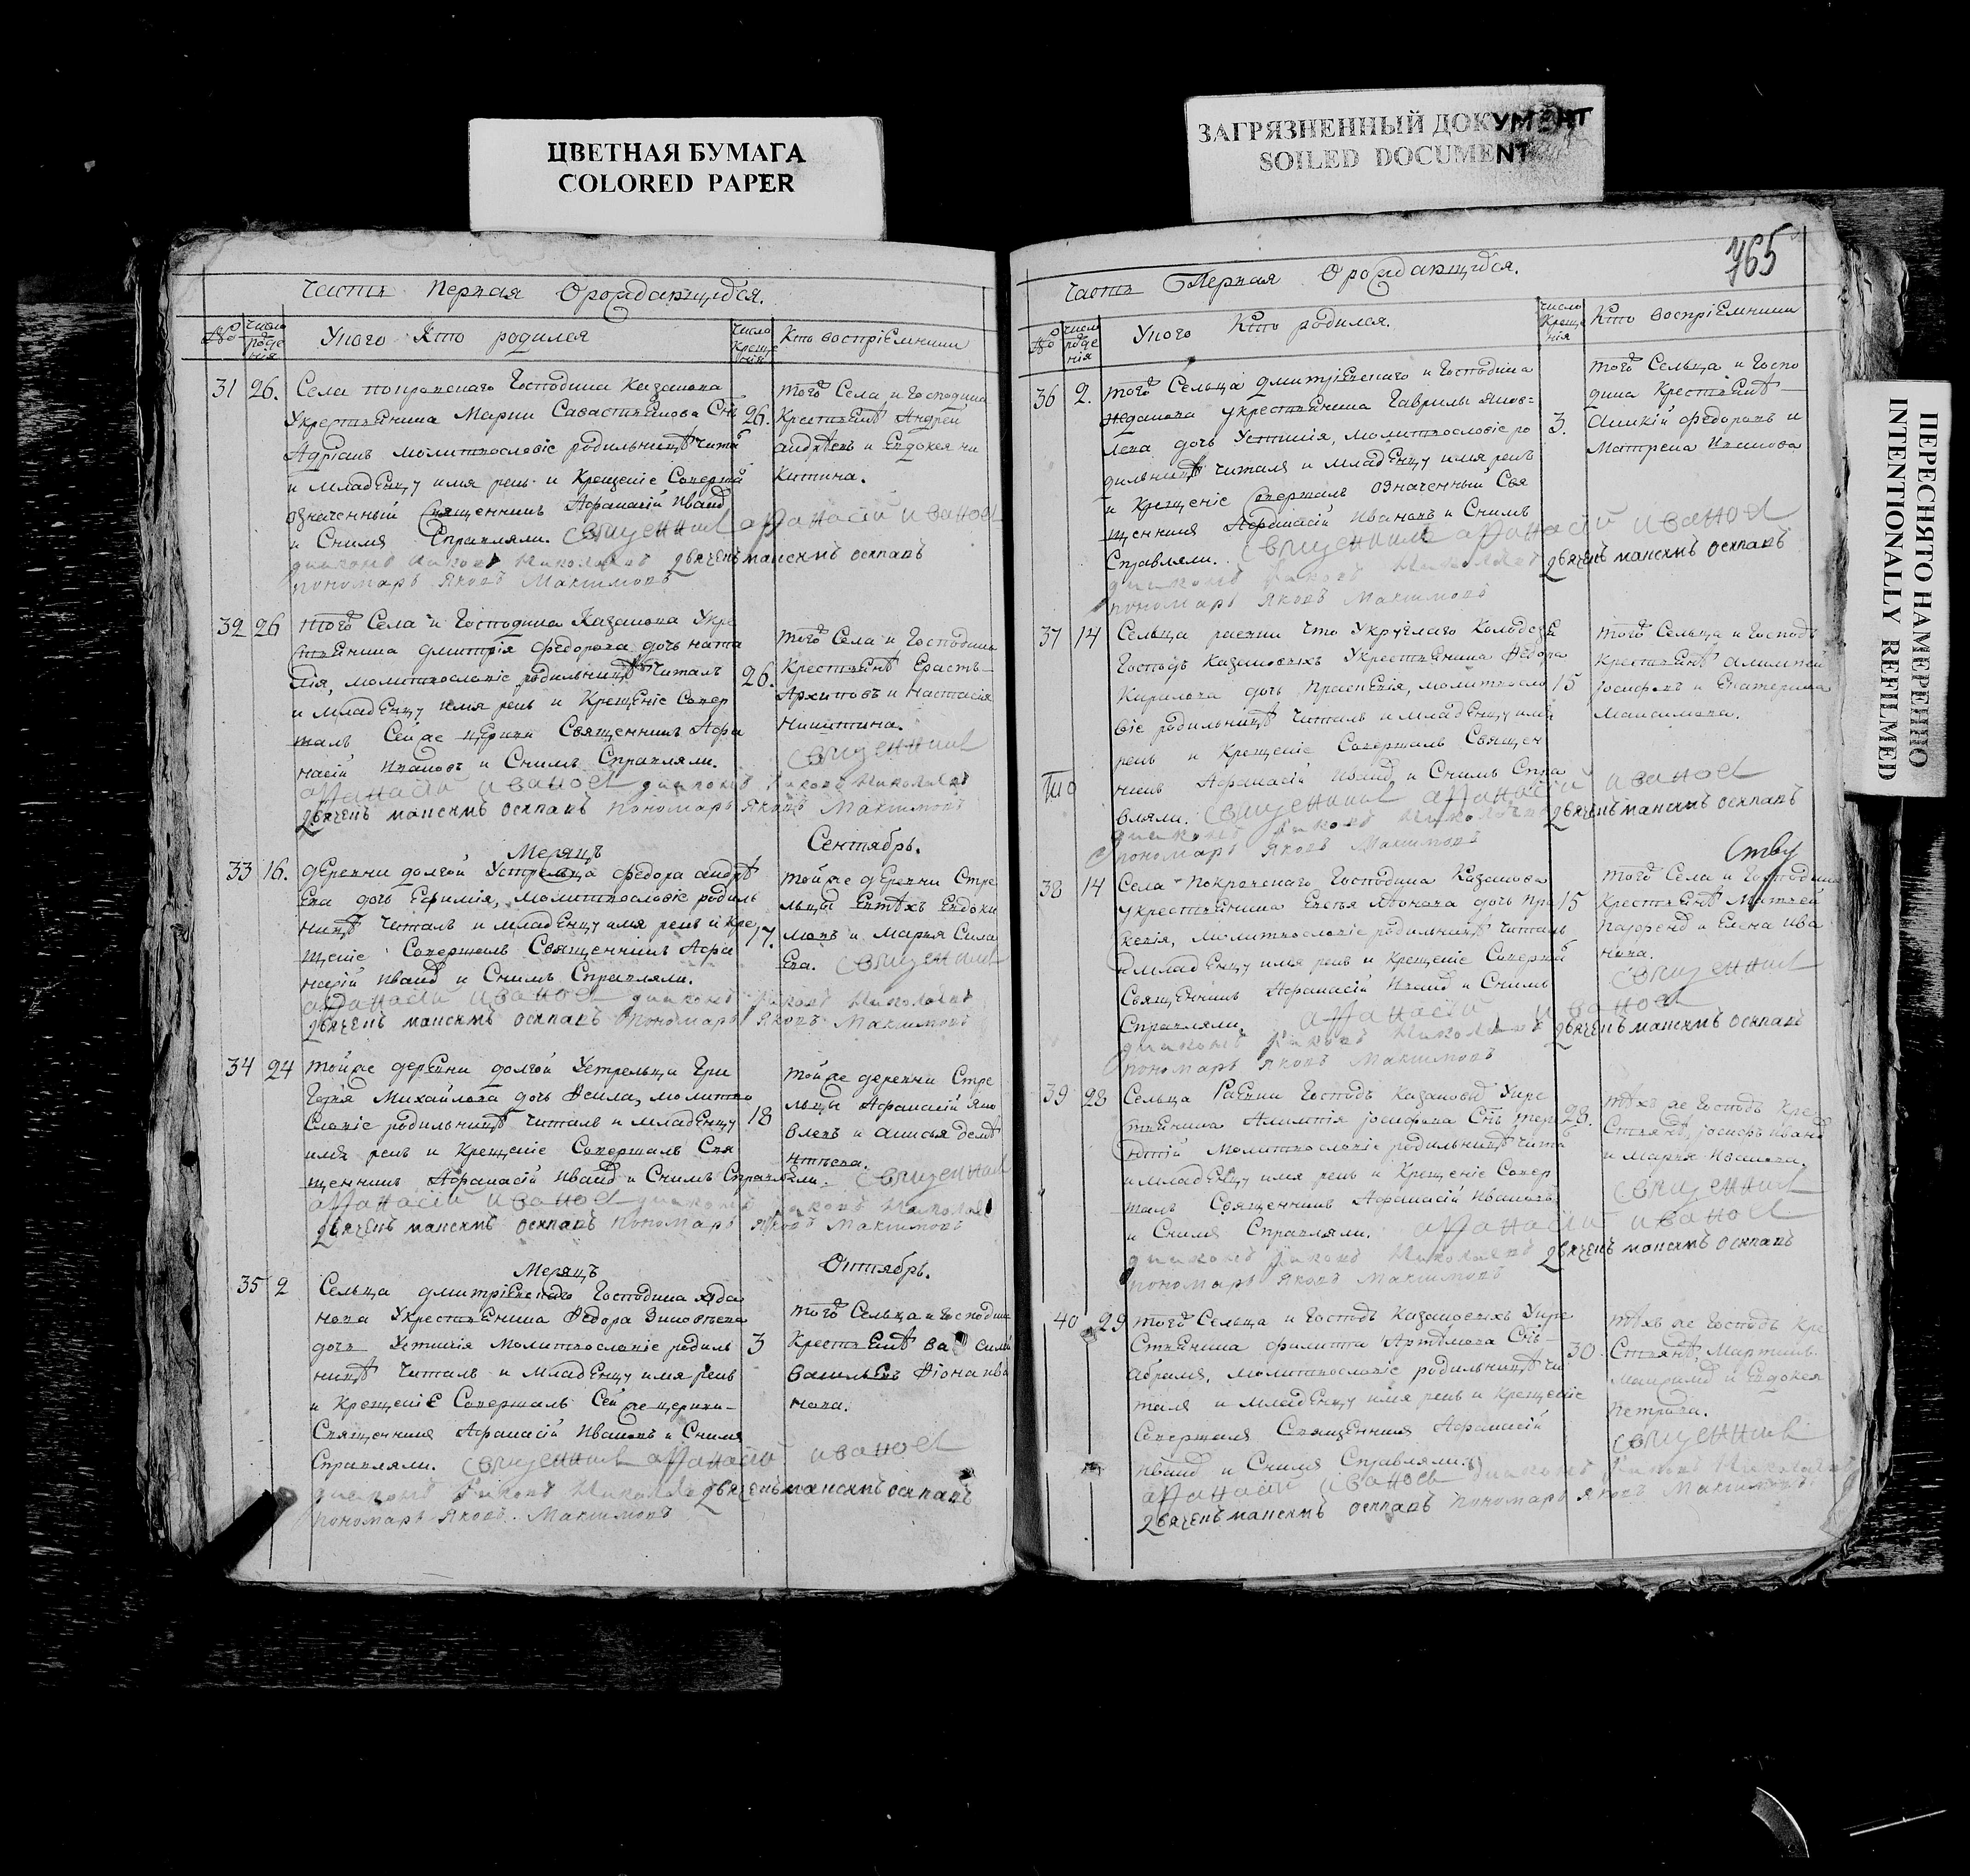 ЦВЕТНАЯ БУМАГА
COLORED PAPER
ЗАГРЯЗНЕННЫЙ ДОКУМЕНТ
SOILED DOCUMENT
ПЕРЕСНЯТО НАМЕРЕННО
INTENTIONALLY REFILMED
Часть Первая О рождающихся.
№ Число рожде нія
У кого Кто родился
Число Креще нія
Кто воспріемники
31 26.
Села покровскаго Господина Казакова
Укрестьянина Марки Савастьянова Снъ
Адріанъ молитвословіе родильницѣ чита
и младЕнцу имя рекъ и Крещеніе Соверша
означенный Священникъ Афанасій Иванов
и Снимя Справляли. священникъ афанасій ивановъ
диаконъ Яковъ Николаевъ дьячекъ максимъ осиповъ
пономарь Яковъ Максимовъ
26.
того Села и Господина
Крестьянѣ Андрей
андрѣевъ и Евдокея ни
китина.
32 26
того Села и Господина Казакова Укре
стьянина дмитрія федорова дочь ната
лія, молитвословіе родильницѣ читалъ
и младЕнцу имя рекъ и Крещеніе Совер
шалъ Сейже церкви Священникъ Афа
насій Ивановъ и Снимъ Справляли.
афанасій ивановъ диаконъ Яковъ Николаевъ
дьячекъ максимъ осиповъ пономарь Яковъ Максимовъ
26.
того Села и Господина
Крестьянѣ Ерастъ
Архиповъ и настасія
никитина.
священникъ
Месяцъ Сентябрь.
33 16.
деревни долгой Устрельца федора андрѣ
Ева дочь Ефимія, молитвословіе родиль
ницѣ читалъ и младЕнцу имя рекъ и Кре
щеніе Совершалъ Священникъ Афа
насій Иванов и Снимъ Справляли.
афанасій ивановъ диаконъ Яковъ Николаевъ
дьячекъ максимъ осиповъ пономарь Яковъ Максимовъ
17.
тойже деревни Стре
льцы Евдоки
мовъ и Марья Сила
Ева. священникъ
34 24
тойже деревни долгой Устрельца Гри
горья Михайлова дочь молитво
словіе родильницѣ читалъ и младЕнцу
имя рекъ и Крещеніе Совершалъ Свя
щенникъ Афанасій Иванов и Снимъ Справляли. священникъ
афанасій ивановъ диаконъ Яковъ Николаевъ
дьячекъ максимъ осиповъ пономарь Яковъ Максимовъ
18
тойже деревни Стре
льцы Афанасій Яко
влевъ и анисья демѣ
нтьева.
Месяцъ Октябрь.
35 2
Сельца дмитріевскаго Господина жда
нова Укрестьянина Федора Зиновьева
дочь Устинія молитвословіе родиль
ницѣ читалъ и младЕнцу имя рекъ
и Крещеніе Совершалъ Сейже церкви
Священникя Афанасій Ивановъ и Снимя
Справляли. священникъ афанасій ивановъ
диаконъ Яковъ Николаевъ дьячекъ максимъ осиповъ
пономарь Яковъ Максимовъ
3
того Сельца и Господина
Крестьянѣ Ва силій
Васильевъ Фіона ива
нова.
765
Часть Первая О рождающихся.
№ Число рожде нія
У кого Кто родился.
Число Креще нія
Кто воспріемники
36 2.
того Сельца дмитріевскаго и Господина
жданова укрестьянина Гаврилы яков=
лева дочь Устинія, молитвословіе ро
дильницѣ читаля и младЕнцу имя рекъ
и Крещеніе Совершалъ означенный Свя
щенникя Афанасій Ивановъ и Снимъ
Справляли. священникъ афанасій ивановъ
диаконъ Яковъ Николаевъ дьячекъ максимъ осиповъ
пономарь Яковъ Максимовъ
3.
того Сельца и Госпо
дина Крестьянѣ
федоровъ и
Матрена
37 14
Сельца раевки что Укруглаго Колодезя
Господъ Казаковыхъ Укрестьянина Федора
Кирилова дочь молитвосло
віе родильницѣ читалъ и младЕнцу имя
рекъ и Крещеніе Совершалъ Священ
никъ Афанасій Иванов и Снимъ Спра
вляли. священникъ афанасій ивановъ
диаконъ Яковъ Николаевъ дьячекъ максимъ осиповъ
пономарь Яковъ Максимовъ
15
того Сельца и Господъ
Крестьянѣ
іосифовъ и Екатерина
Максимова.
38 14
Села Покровскаго Господина Казакова
укрестьянина дочь пра
скевія, молитвословіе родильницѣ читалъ
и младЕнцу имя рекъ и Крещеніе Соверша
Священникъ Афанасій Иванов и Снимъ
Справляли афанасій ивановъ
диаконъ Яковъ Николаевъ дьячекъ максимъ осиповъ
пономарь Яковъ Максимовъ
15
того Села и Господина
Крестьянѣ Матвей
и Елена Ива
нова.
священникъ
39 28
Сельца Раевки Господъ Казаковыхъ Укре
стьянина іосифова Снъ тере
нтій молитвословіе родильницѣ чита
и младЕнцу имя рекъ и Крещеніе Совер
шалъ Священникъ Афанасій Ивановъ
и Снимя Справляли. афанасій ивановъ
диаконъ Яковъ Николаевъ дьячекъ максимъ осиповъ
пономарь Яковъ Максимовъ
28.
тѣхъ же Господъ Кре
стьянѣ, іосифъ Иванов
и Марья Иванова.
священникъ
40 29
того Сельца и Господъ Казаковыхъ Укре
стьянина филипа Артамова Снъ
абрамя, молитвословіе родильницѣ чи
таля и младЕнцу имя рекъ и Крещеніе
Совершаля Священникя Афанасій
Иванов и Снимя Справляли.
афанасій ивановъ диаконъ Яковъ Николаевъ
дьячекъ максимъ осиповъ пономарь Яковъ Максимовъ
30.
тѣхъ же Господъ Кре
стьянѣ Мартинъ
и Евдокея
Петрова.
священникъ